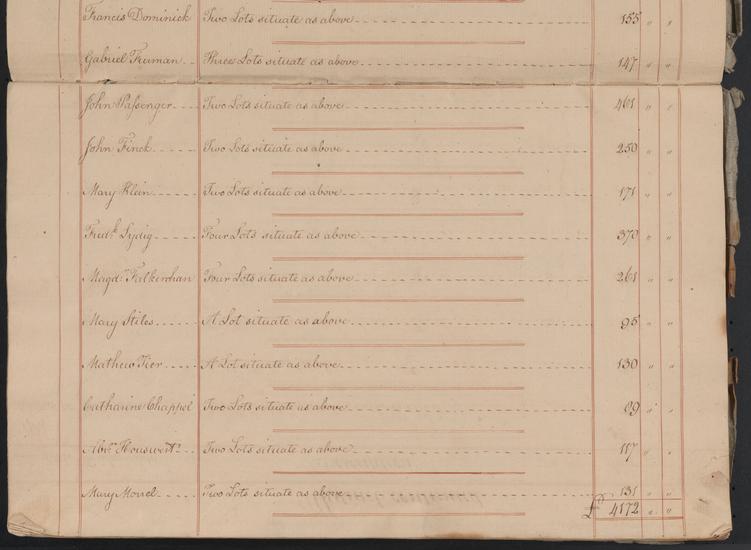 Francis Dominick Two Lots situate as above 155 " "
Gabriel Furman Three Lots situate as above 147 " "
John Passenger Two Lots situate as above 461 " "
John Finck Two Lots situate as above 250 " "
Mary Klein Two Lots situate as above 171 " "
Fredk. Lydig Four Lots situate as above 370 " "
Magdn. Falkerchan Four Lots situate as above 261 " "
Mary Stiles A Lot situate as above 95 " "
Mathew Tier A Lot situate as above 130 " "
Catharine Chappel Two Lots situate as above 89 " "
Abm. Two Lots situate as above 117 " "
Mary Morrel Two Lots situate as above 131 " "
£ 4172 " "